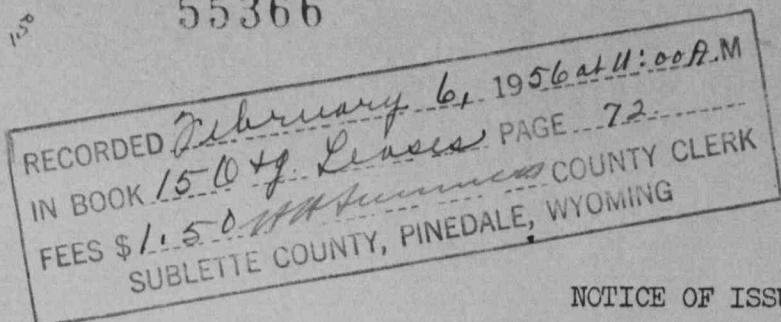 1.50
55366
RECORDED February 6, 1956 at 11:00 A.M
IN BOOK 15 O & G Leases PAGE 72
FEES $ 1.50 COUNTY CLERK
SUBLETTE COUNTY, PINEDALE, WYOMING
NOTICE OF ISSU